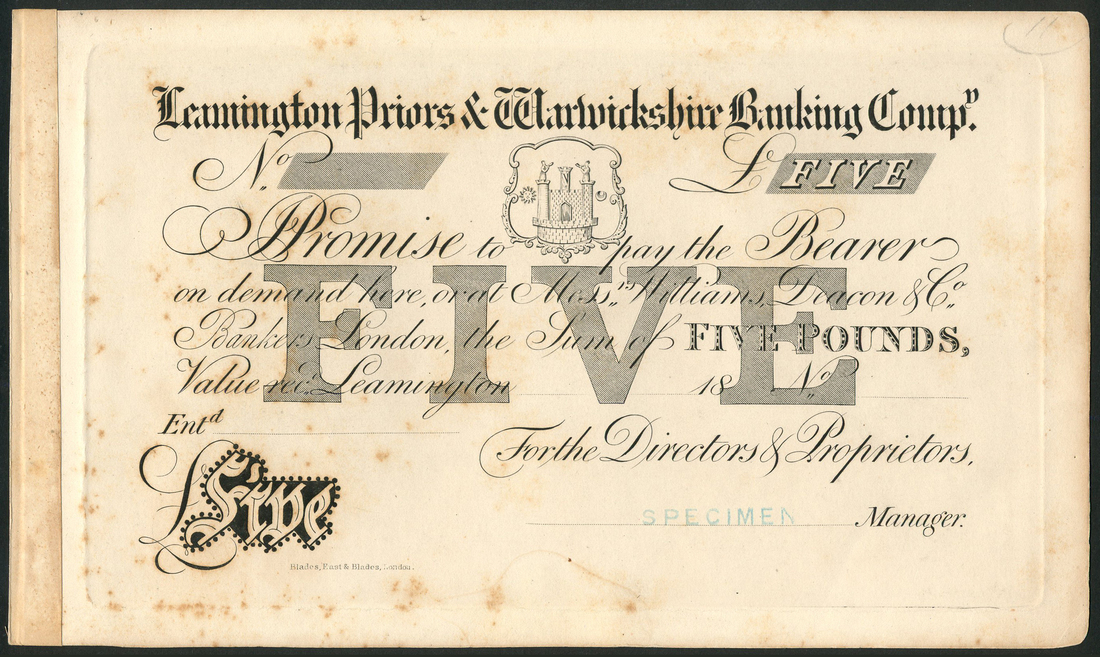 Leamington Priors & Warwickshire Banking Compy.
No. £ FIVE
I Promise to pay the Bearer
on demand here, or at Messrs. Williams, Deacon & Co.
Bankers London, the Sum of FIVE POUNDS,
Value recd. Leamington 18 No.
FIVE
Entd
For the Directors & Proprietors,
£ Five
SPECIMEN Manager.
Blades, East & Blades, London.